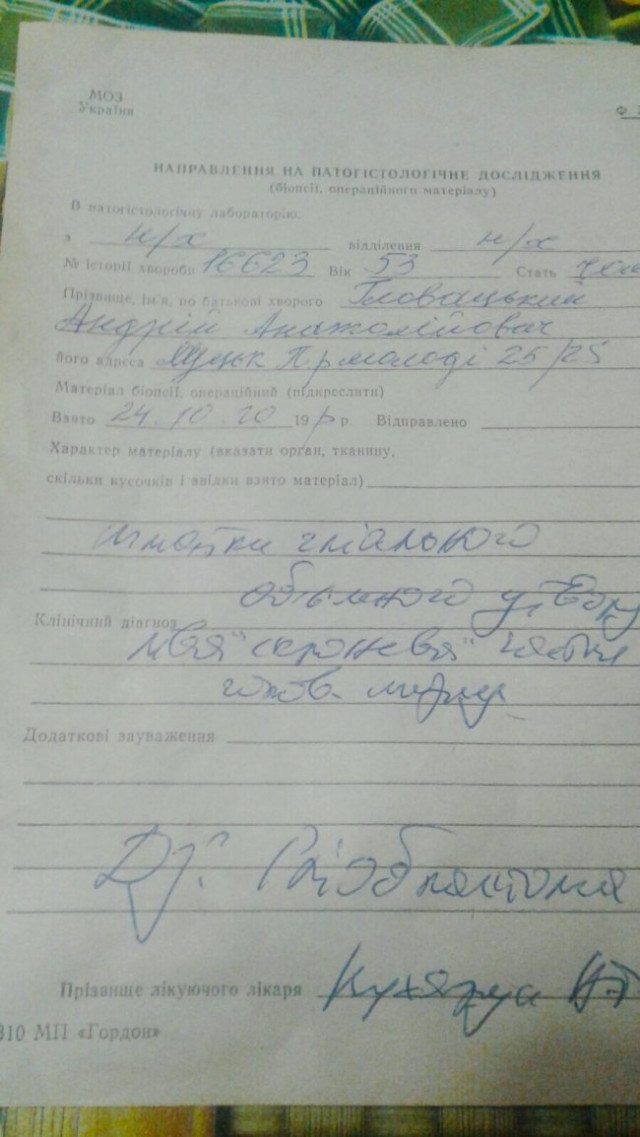 МОЗ
України
Ф
НАПРАВЛЕННЯ НА ПАТОГІСТОЛОГІЧНЕ ДОСЛІДЖЕННЯ
(біопсії, операційного матеріалу)
В патогістологічну лабораторію
з н/х відділення н/х
№ історії хвороби 16623 Вік 53 Стать чол
Прізвище, ім'я, по батькові хворого Гловацький
Андрій Анатолійович
його адреса Луцьк Пр молоді 25/25
Матеріал біопсії, операційний (підкреслити)
Взято 24.10.20 19 р. Відправлено
Характер матеріалу (вказати орган, тканину,
скільки кусочків і звідки взято матеріал)
шматки гліального
об'ємного утвору
Клінічний діагноз
ліва "скронева" частка
голов. мозку
Додаткові зауваження
Ds: Гліобластома
Прізвище лікуючого лікаря
310 МП «Гордон»